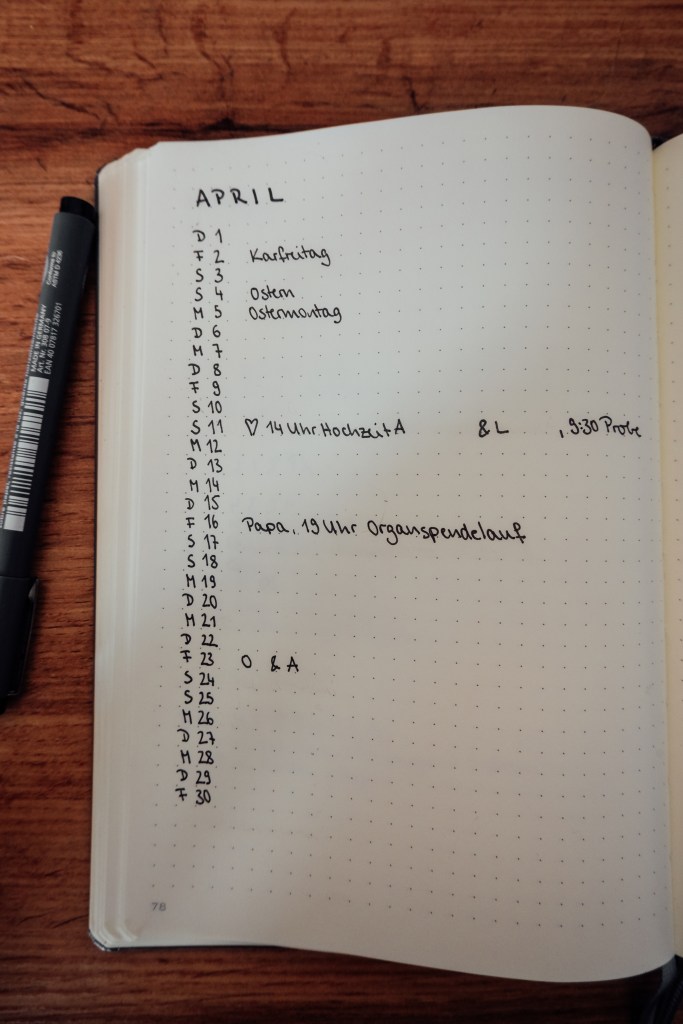 APRIL
D 1
F 2 Karfreitag
S 3
S 4 Ostern
M 5 Ostermontag
D 6
M 7
D 8
F 9
S 10
S 11 ♡ 14 Uhr Hochzeit A & L , 9:30 Probe
M 12
D 13
M 14
D 15
F 16 Papa, 19 Uhr Organspendelauf
S 17
S 18
M 19
D 20
M 21
D 22
F 23 O & A
S 24
S 25
M 26
D 27
M 28
D 29
F 30
78
MADE IN GERMANY
Art. Nr. 308 07-9
EAN 40 07817 326701
Conforms to
ASTM D 4236